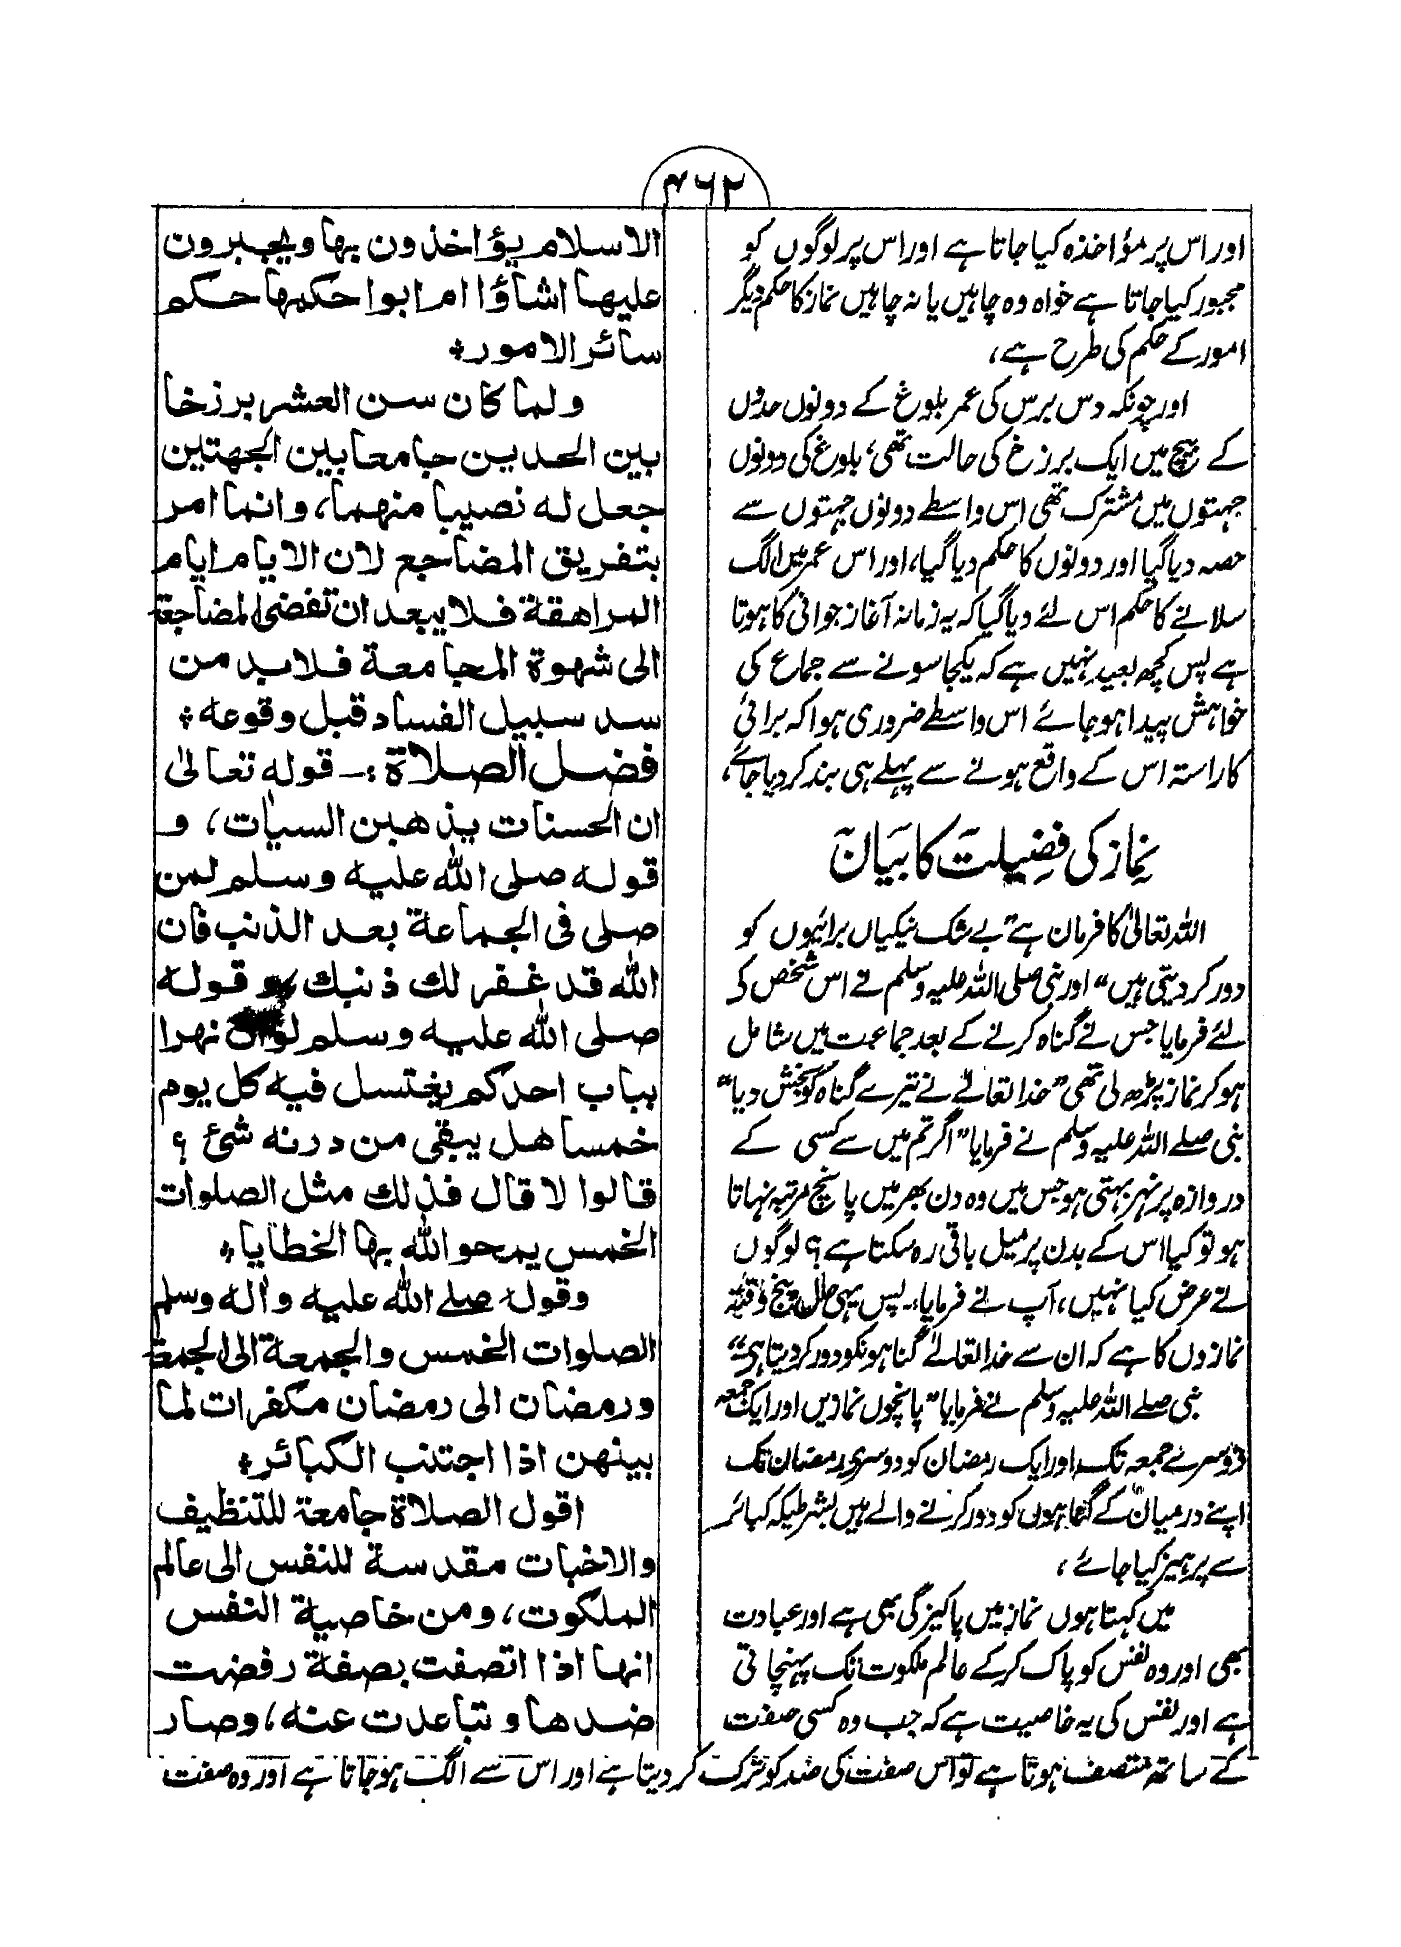 ۴۶۲
اور اس پر مؤاخذہ کیا جاتا ہے اور اس پر لوگوں کو
مجبور کیا جاتا ہے خواہ وہ چاہیں یا نہ چاہیں نماز کا حکم دیگر
امور کے حکم کی طرح ہے،
اور چونکہ دس برس کی عمر بلوغ کے دونوں حدوں
کے بیچ میں ایک برزخ کی حالت تھی، بلوغ کی دونوں
جہتوں میں مشترک تھی اس واسطے دونوں جہتوں سے
حصہ دیا گیا اور دونوں کا حکم دیا گیا، اور اس عمر میں الگ
سلانے کا حکم اس لئے دیا گیا کہ یہ زمانہ آغاز جوانی کا ہوتا
ہے پس کچھ بعید نہیں ہے کہ یکجا سونے سے جماع کی
خواہش پیدا ہو جائے اس واسطے ضروری ہوا کہ برائی
کا راستہ اس کے واقع ہونے سے پہلے ہی بند کر دیا جائے،
نماز کی فضیلت کا بیان
اللہ تعالیٰ کا فرمان ہے "بے شک نیکیاں برائیوں کو
دور کر دیتی ہیں" اور نبی صلی اللہ علیہ وسلم نے اس شخص کے
لئے فرمایا جس نے گناہ کرنے کے بعد جماعت میں شامل
ہو کر نماز پڑھ لی تھی "خدا تعالےٰ نے تیرے گناہ کو بخش دیا"
نبی صلے اللہ علیہ وسلم نے فرمایا "اگر تم میں سے کسی کے
دروازہ پر نہر بہتی ہو جس میں وہ دن بھر میں پانچ مرتبہ نہاتا
ہو تو کیا اس کے بدن پر میل باقی رہ سکتا ہے؟ لوگوں
نے عرض کیا نہیں، آپ نے فرمایا:۔ پس یہی حال پنج وقتیہ
نمازوں کا ہے کہ ان سے خدا تعالےٰ گناہونکو دور کر دیتا ہے"
نبی صلے اللہ علیہ وسلم نے فرمایا "پانچوں نمازیں اور ایک جمعہ
دوسرے جمعہ تک اور ایک رمضان کو دوسری رمضان تک
اپنے درمیان کے گناہوں کو دور کرنے والے ہیں بشرطیکہ کبائر
سے پرہیز کیا جائے،
میں کہتا ہوں نماز میں پاکیزگی بھی ہے اور عبادت
بھی اور وہ نفس کو پاک کر کے عالم ملکوت تک پہنچاتی
ہے اور نفس کی یہ خاصیت ہے کہ جب وہ کسی صفت
کے ساتھ متصف ہوتا ہے تو اس صفت کی ضد کو ترک کر دیتا ہے اور اس سے الگ ہو جاتا ہے اور وہ صفت
الاسلام يؤاخذون بها ويجبرون
عليها اشاؤا ام ابوا حكمها حكم
سائر الامور*
ولما كان سن العشر برزخا
بين الحدين جامعا بين الجهتين
جعل له نصيبا منهما، وانما امر
بتفريق المضاجع لان الايام ايام
المراهقة فلا يبعد ان تفضى المضاجعة
الى شهوة المجامعة فلا بد من
سد سبيل الفساد قبل وقوعه*
فضل الصلاة:۔ قوله تعالىٰ
ان الحسنات يذهبن السيات، و
قوله صلى الله عليه وسلم لمن
صلى فى الجماعة بعد الذنب فان
الله قد غفر لك ذنبك و قوله
صلى الله عليه وسلم لو ان نهرا
بباب احدكم يغتسل فيه كل يوم
خمسا هل يبقى من درنه شئ ؟
قالوا لا قال فذلك مثل الصلوات
الخمس يمحو الله بها الخطايا*
وقوله صلے الله عليه واٰله وسلم
الصلوات الخمس والجمعة الى الجمعة
ورمضان الى رمضان مكفرات لما
بينهن اذا اجتنب الكبائر*
اقول الصلاة جامعة للتنظيف
والاخبات مقدسة للنفس الى عالم
الملكوت، ومن خاصية النفس
انها اذا اتصفت بصفة رفضت
ضدها وتباعدت عنه، وصار